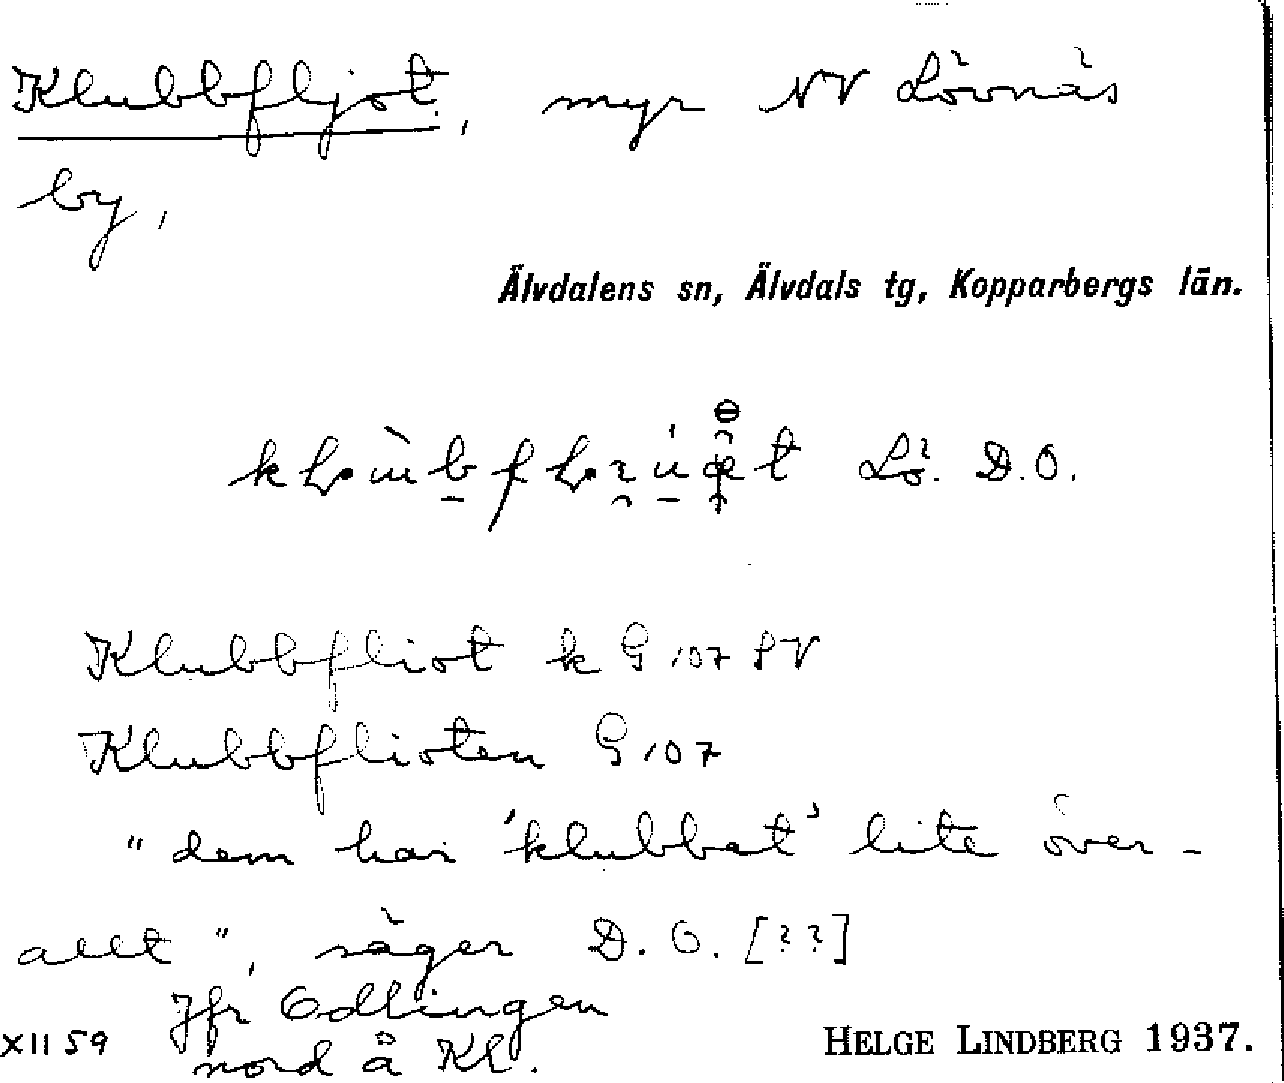 Klubbfljot, myr NV Lövnäs
by,
Älvdalens sn, Älvdals tg, Kopparbergs län.
Lö. D.O.
Klubbfliot k G 107 SV
Klubbflioten G 107
"dem har 'klubbat' lite över-
allt", säger D. O. [??]
Jfr Odlingen
nord å Kl.
XII 59
HELGE LINDBERG 1937.